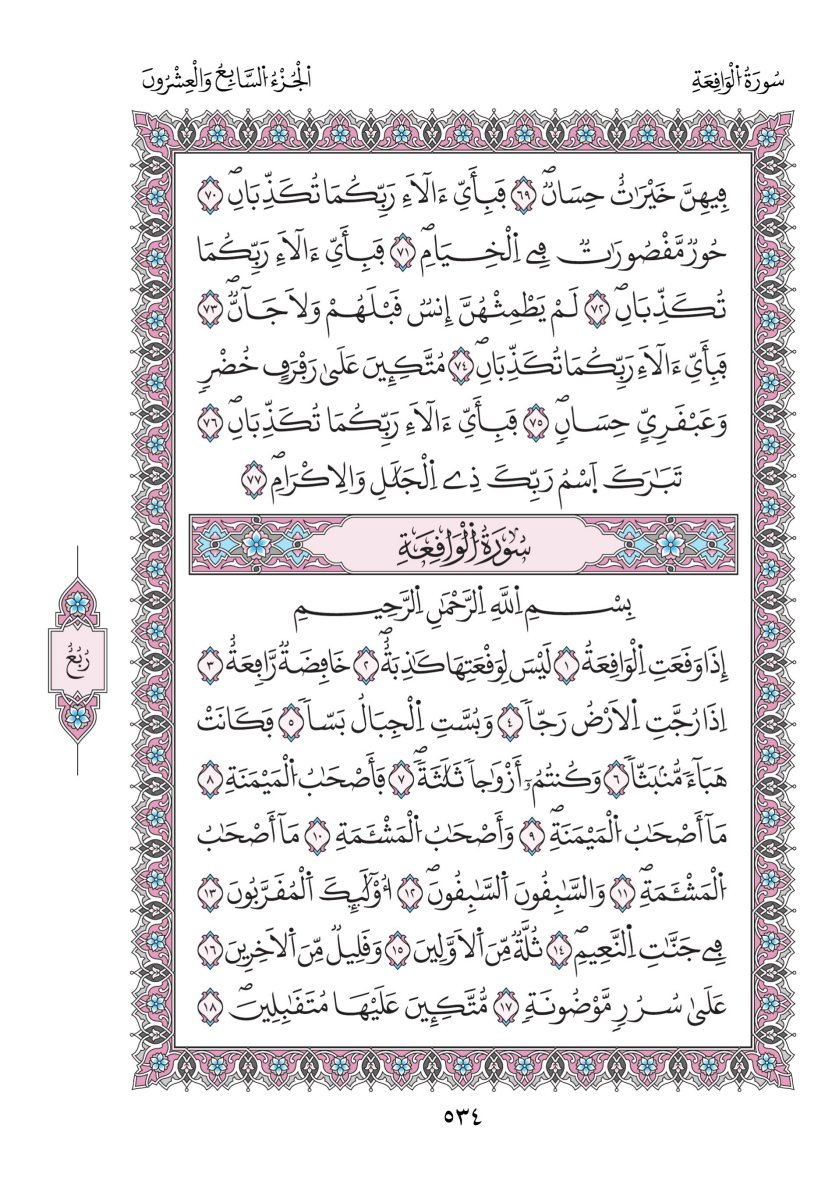 سُورَةُ اُ۬لْوَاقِعَةِ
اَ۬لْجُزْءُ اُ۬لسَّابِعُ وَالْعِشْرُونَ
فِيهِنَّ خَيْرَٰتٌ حِسَانٞۖ ٦٩ فَبِأَيِّ ءَالَآءِ رَبِّكُمَا تُكَذِّبَانِۖ ٧٠
حُورٞ مَّقْصُورَٰتٞ فِے اِ۬لْخِيَامِۖ ٧١ فَبِأَيِّ ءَالَآءِ رَبِّكُمَا
تُكَذِّبَانِۖ ٧٢ لَمْ يَطْمِثْهُنَّ إِنسٞ قَبْلَهُمْ وَلَا جَآنّٞۖ ٧٣
فَبِأَيِّ ءَالَآءِ رَبِّكُمَا تُكَذِّبَانِۖ ٧٤ مُتَّكِـِٕينَ عَلَىٰ رَفْرَفٍ خُضْرٖ
وَعَبْقَرِيٍّ حِسَانٖۖ ٧٥ فَبِأَيِّ ءَالَآءِ رَبِّكُمَا تُكَذِّبَانِۖ ٧٦
تَبَٰرَكَ اَ۪سْمُ رَبِّكَ ذِے اِ۬لْجَلَٰلِ وَالِاكْرَامِۖ ٧٧
سُورَةُ اُ۬لْوَاقِعَةِ
بِسْمِ اِ۬للَّهِ اِ۬لرَّحْمَٰنِ اِ۬لرَّحِيمِ
إِذَا وَقَعَتِ اِ۬لْوَاقِعَةُ ١ لَيْسَ لِوَقْعَتِهَا كَٰذِبَةٌۖ ٢ خَافِضَةٞ رَّافِعَةٌ ٣
اِذَا رُجَّتِ اِ۬لَارْضُ رَجّاٗ ٤ وَبُسَّتِ اِ۬لْجِبَالُ بَسّاٗ ٥ فَكَانَتْ
هَبَآءٗ مُّنۢبَثّاٗ ٦ وَكُنتُمُۥٓ أَزْوَٰجاٗ ثَلَٰثَةٗۖ ٧ فَأَصْحَٰبُ اُ۬لْمَيْمَنَةِ ٨
مَآ أَصْحَٰبُ اُ۬لْمَيْمَنَةِۖ ٩ وَأَصْحَٰبُ اُ۬لْمَشْـَٔمَةِ ١٠ مَآ أَصْحَٰبُ
اُ۬لْمَشْـَٔمَةِۖ ١١ وَالسَّٰبِقُونَ اَ۬لسَّٰبِقُونَۖ ١٢ أُوْلَٰٓئِكَ اَ۬لْمُقَرَّبُونَ ١٣
فِے جَنَّٰتِ اِ۬لنَّعِيمِۖ ١٤ ثُلَّةٞ مِّنَ اَ۬لَاوَّلِينَ ١٥ وَقَلِيلٞ مِّنَ اَ۬لَاخِرِينَ ١٦
عَلَىٰ سُرُرٖ مَّوْضُونَةٖ ١٧ مُّتَّكِـِٕينَ عَلَيْهَا مُتَقَٰبِلِينَۖ ١٨
رُبُعُ
٥٣٤